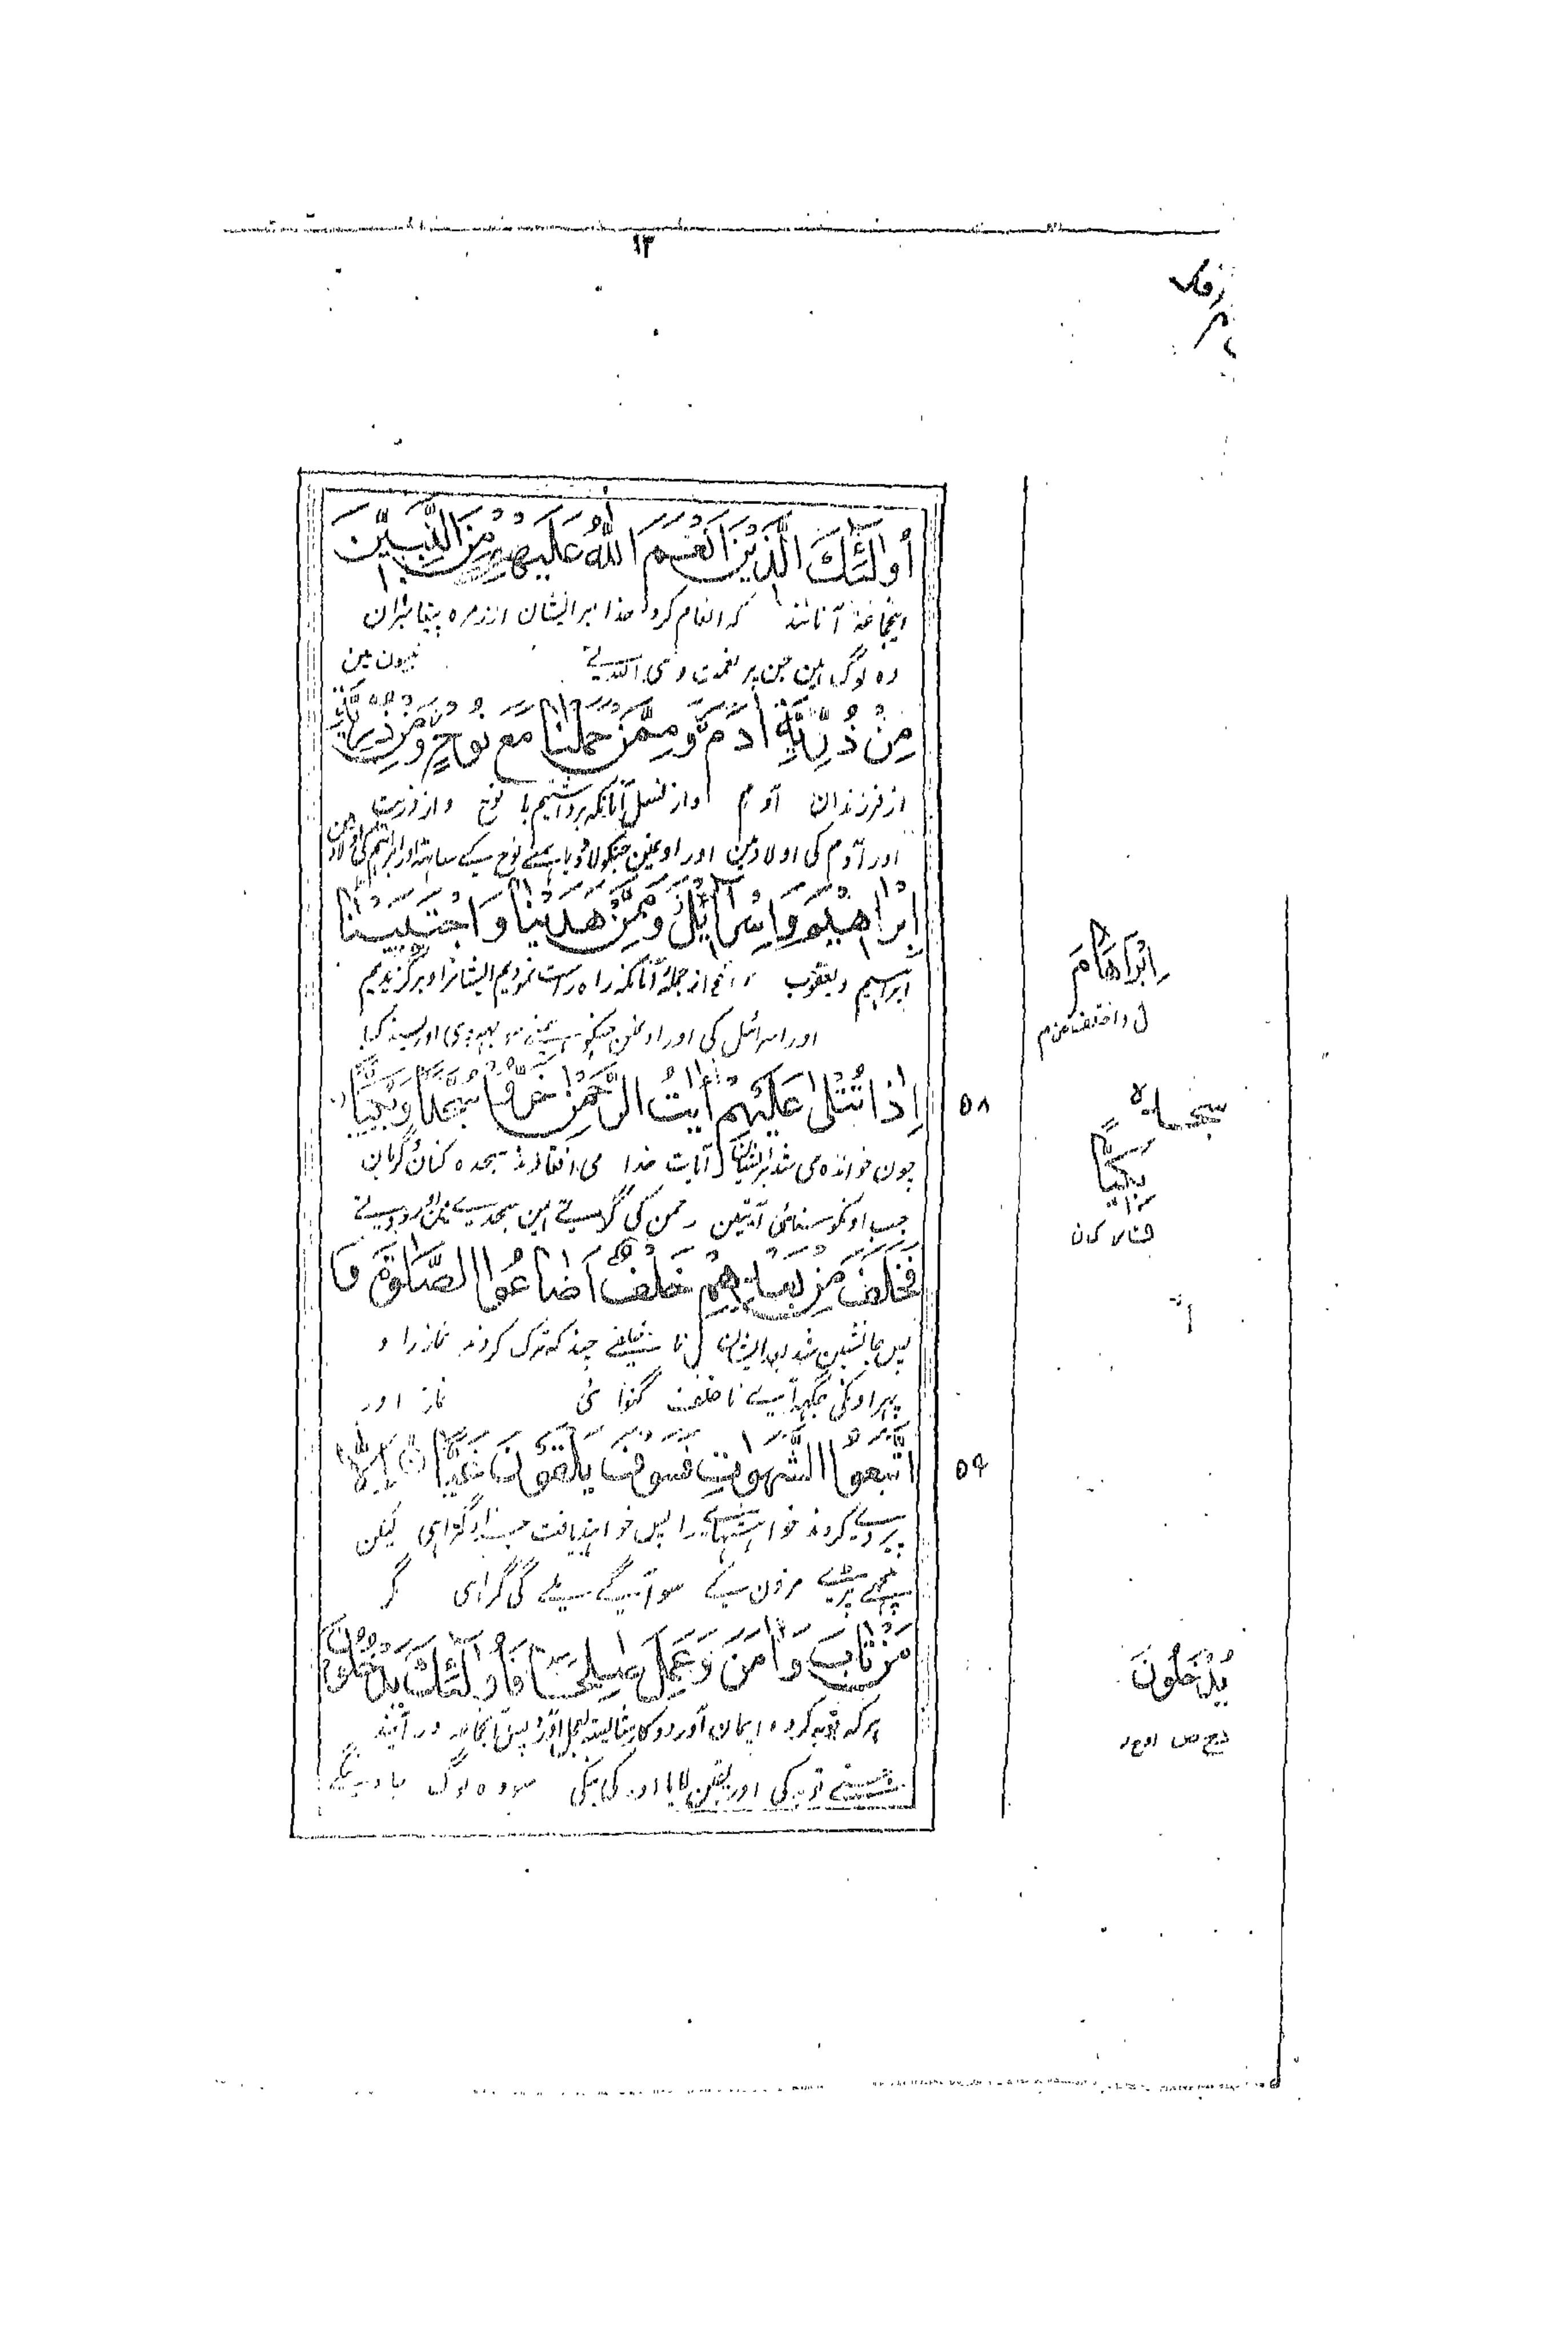 ۱۳
أُولٰٓئِكَ الَّذِيْنَ اَنْعَمَ اللّٰهُ عَلَيْهِمْ مِّنَ النَّبِيّٖنَ
اینجماعة آنانند که انعام کرد خدا بر ایشان از زمره پیغامبران
وه لوگ ہین جن پر نعمت دی اللہ نے نبیون مین
مِنْ ذُرِّيَّةِ اٰدَمَ وَمِمَّنْ حَمَلْنَا مَعَ نُوْحٍ وَّمِنْ ذُرِّيَّةِ
از فرزندان آدم و از نسل آنانکه برداشتیم با نوح و از ذریت
اور آدم کی اولاد مین اور اونمین جنکو لاد لیا ہمنے نوح کے ساتھ اور ابراہیم کی اولاد مین
اِبْرٰاهِيْمَ وَاِسْرَآئِيْلَ وَمِمَّنْ هَدَيْنَا وَاجْتَبَيْنَا
ابراہیم و یعقوب از جملهٔ آنانکه راه راست نمودیم ایشانرا و برگزیدیم
اور اسرائیل کی اور اونمین جنکو ہمنے سوجھ دی اور پسند کیا
اِذَا تُتْلٰى عَلَيْهِمْ اٰيٰتُ الرَّحْمٰنِ خَرُّوْا سُجَّدًا وَّبُكِيًّا
۵۸
چون خوانده می شد بر ایشان آیات خدا می افتادند سجده کنان و گریان
جب اونکو سنائی آیتین رحمن کی گرتے ہین سجدے مین اور روتے
فَخَلَفَ مِنْ بَعْدِهِمْ خَلْفٌ اَضَاعُوا الصَّلٰوةَ وَا
پس جانشین شد بعد ایشان نا خلفے چند که ترک کردند نماز را و
پھر اونکی جگہ آئے نا خلف گنوائی نماز اور
اتَّبَعُوا الشَّهَوٰتِ فَسَوْفَ يَلْقَوْنَ غَيًّا اِلَّا
۵۹
پیروی کردند خواہشہائے را پس خواہند یافت جزاء گمراہی لیکن
پیچھے پڑے مزون کے سو آگے ملے گی گمراہی مگر
مَنْ تَابَ وَاٰمَنَ وَعَمِلَ صٰلِحًا فَاُولٰٓئِكَ يَدْخُلُوْنَ
ہر که توبه کرد و ایمان آورد و کار شایسته بعمل آورد پس آنجماعه در آیند
جسنے توبہ کی اور یقین لایا اور کی نیکی سو وہ لوگ جاوینگے
اِبْرَاهَامَ
سجداہ
بِكِيًّا
يُدْخَلُوْنَ